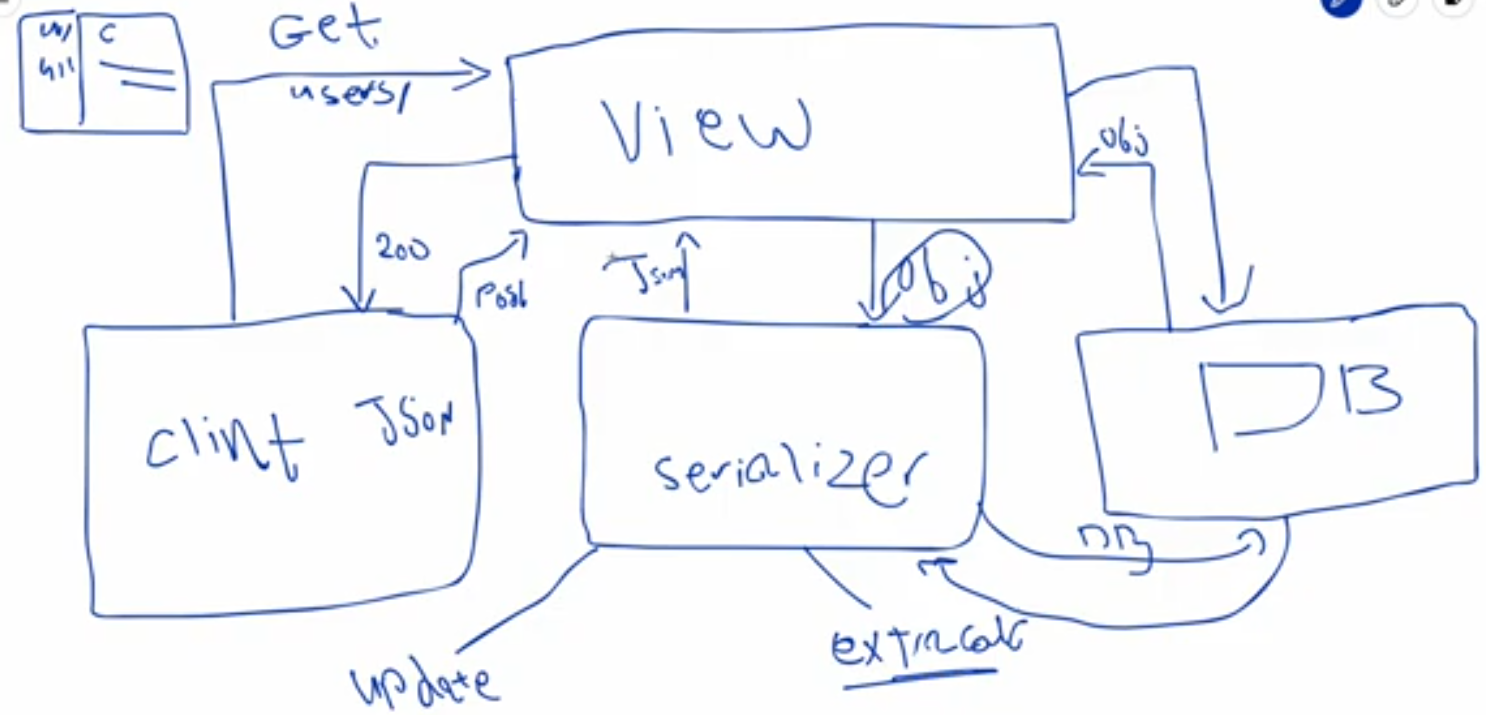 C
Get
users/
View
obj
200
Post
Json
obj
clint Json
serializer
DB
DB
update